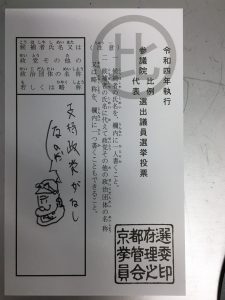 令和四年執行
参議院比例代表選出議員選挙投票
(注意)
一 候補者の氏名は、欄内に一人書くこと。
二 候補者の氏名に代えて政党その他の政治団体の名称又は略称を、欄内に一つ書くこともできること。
候補者氏名又は
政党その他の
政治団体の名称
若しくは略称
支持政党がなし
なのだ
比
東京都選挙管理委員会之印